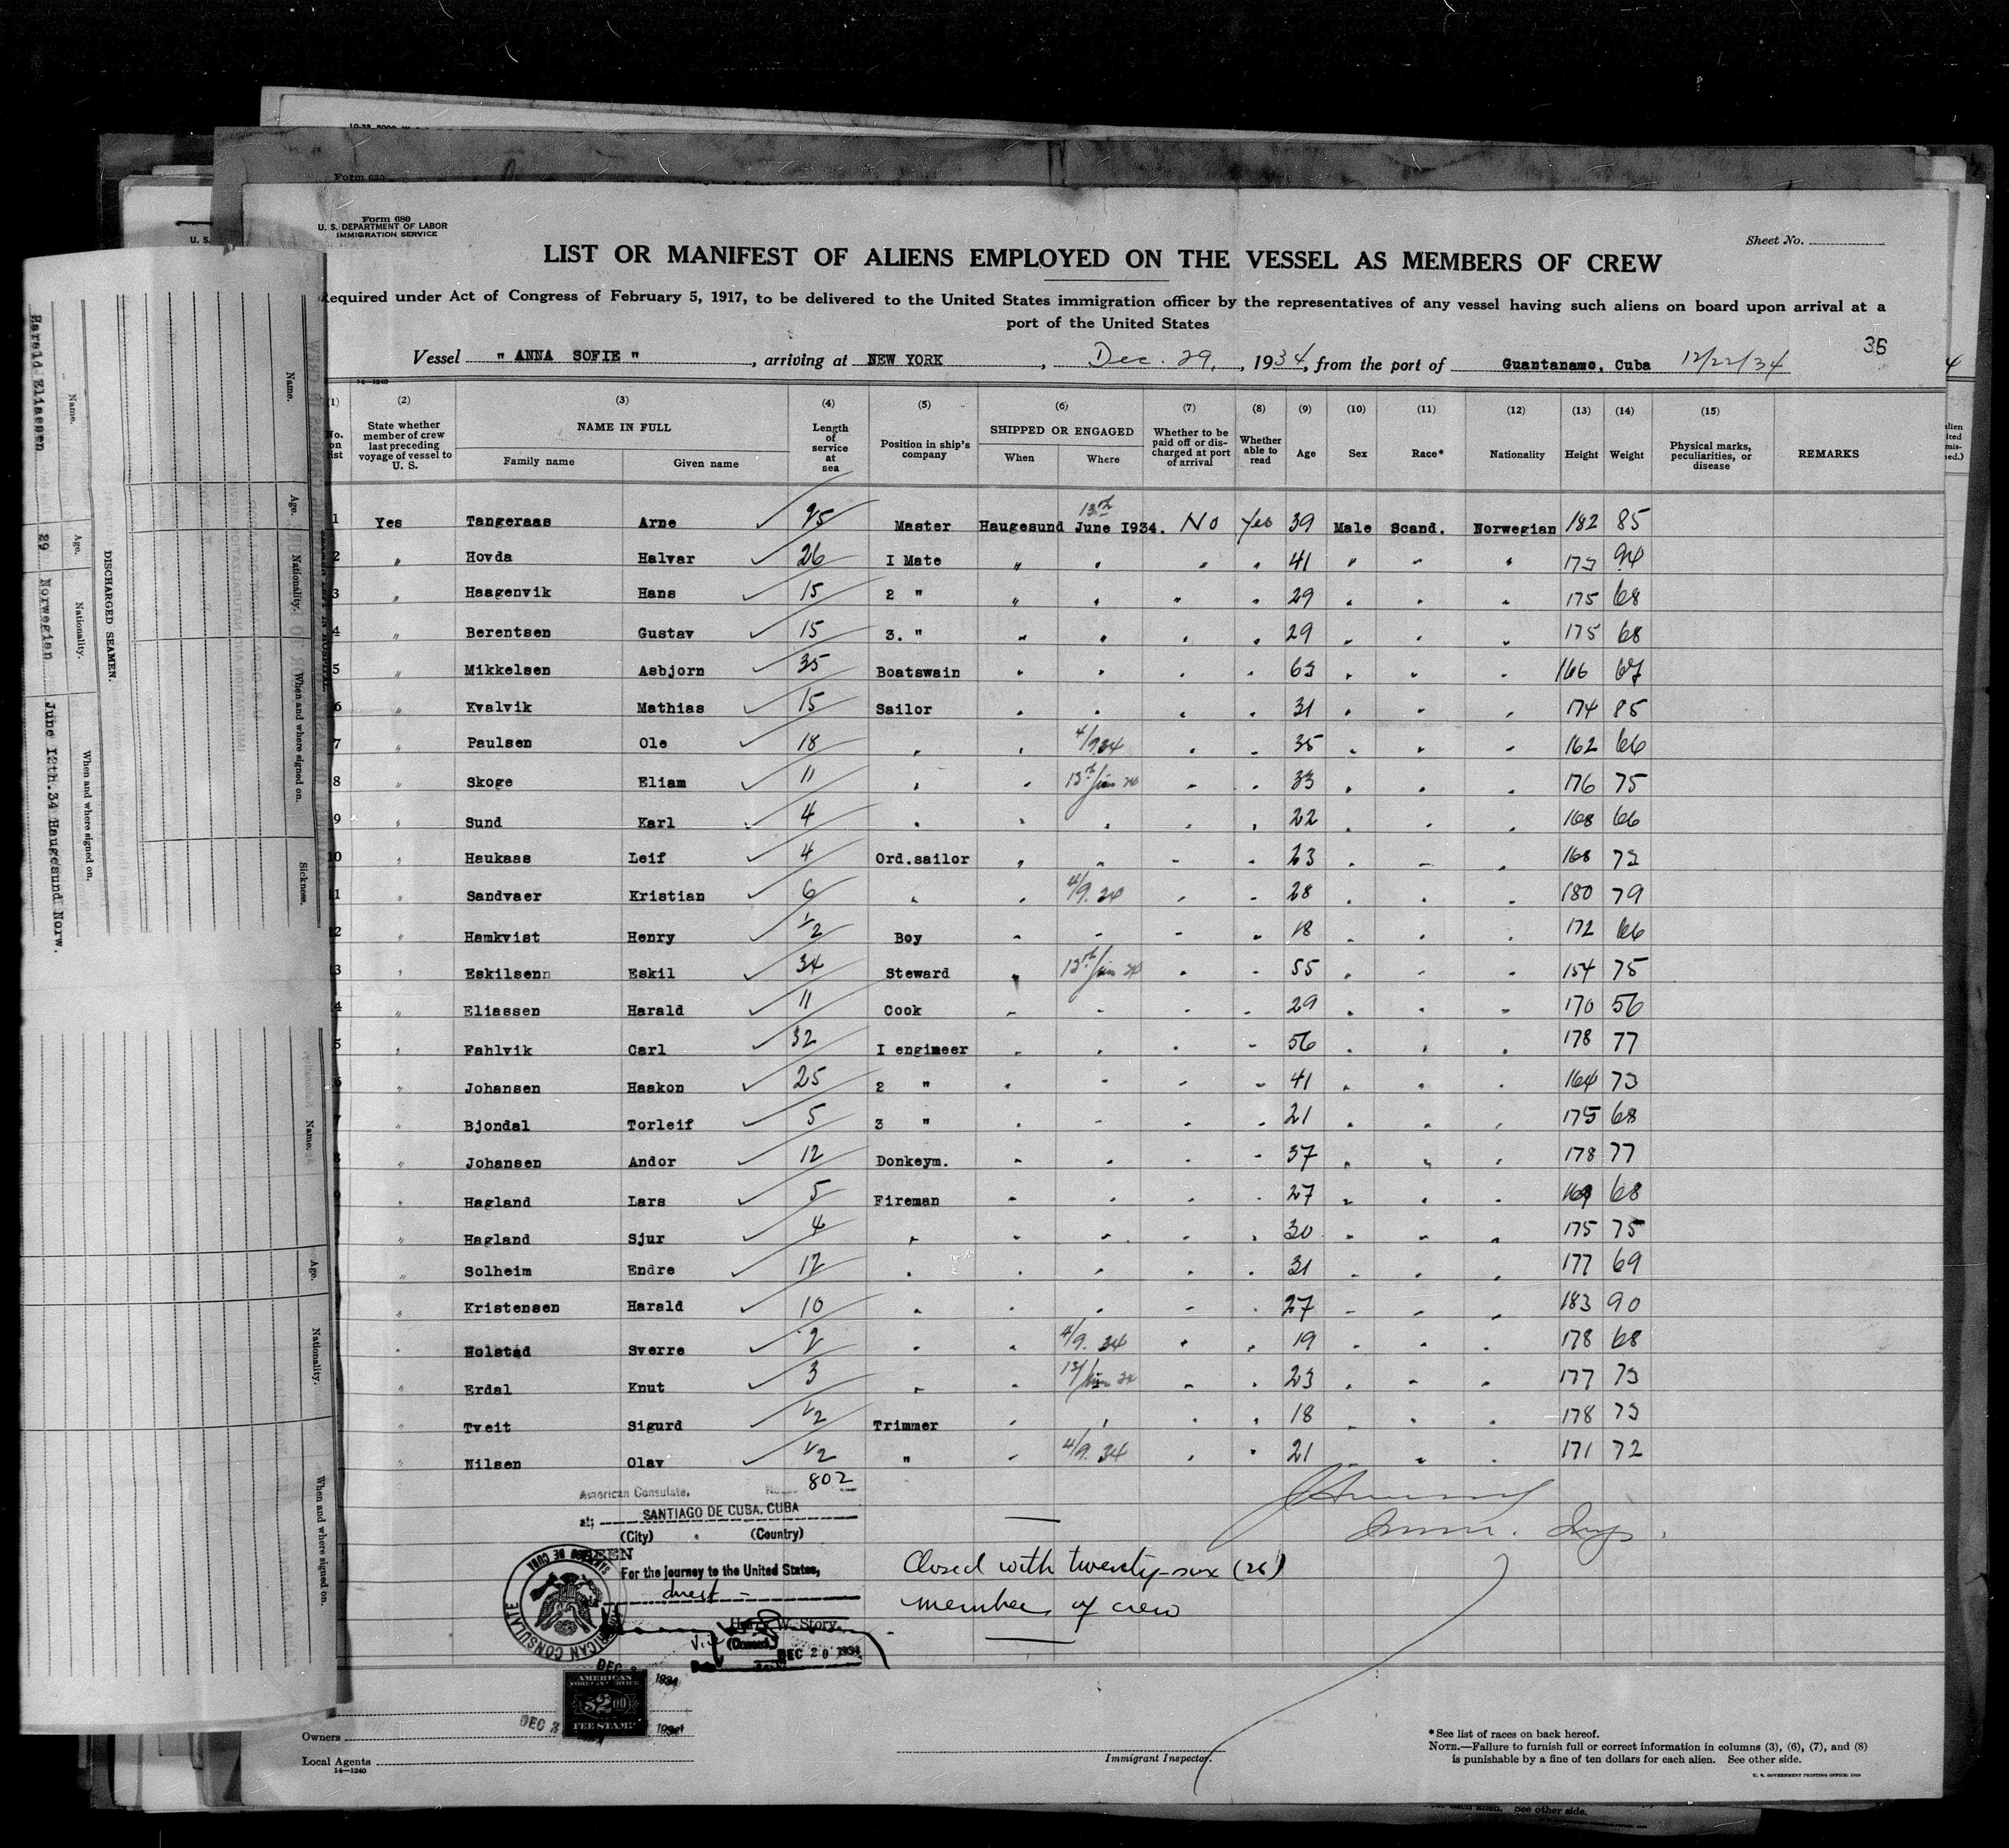 Form 680
U. S. DEPARTMENT OF LABOR
IMMIGRATION SERVICE
Sheet No.
LIST OR MANIFEST OF ALIENS EMPLOYED ON THE VESSEL AS MEMBERS OF CREW
Required under Act of Congress of February 5, 1917, to be delivered to the United States immigration officer by the representatives of any vessel having such aliens on board upon arrival at a
port of the United States
36
Vessel " ANNA SOFIE ", arriving at NEW YORK, Dec. 29, 1934, from the port of Guantanamo, Cuba 12/22/34
(1) (2) (3) (4) (5) (6) (7) (8) (9) (10) (11) (12) (13) (14) (15)
No. on list State whether member of crew last preceding voyage of vessel to U. S. NAME IN FULL Family name Given name Length of service at sea Position in ship's company SHIPPED OR ENGAGED When Where Whether to be paid off or discharged at port of arrival Whether able to read Age Sex Race* Nationality Height Weight Physical marks, peculiarities, or disease REMARKS
1 Yes Tangeraas Arne 25 Master Haugesund 13th June 1934. No Yes 39 Male Scand. Norwegian 182 85
2 " Hovda Halvar 26 I Mate " " " " 41 " " " 173 94
3 " Haagenvik Hans 15 2 " " " " " 29 " " " 175 68
4 " Berentsen Gustav 15 3. " " " " " 29 " " " 175 68
5 " Mikkelsen Asbjorn 35 Boatswain " " " " 63 " " " 166 67
6 " Kvalvik Mathias 15 Sailor " " " " 31 " " " 174 85
7 " Paulsen Ole 18 " " 4/9 34 " " 35 " " " 162 66
8 " Skoge Eliam 11 " " 13th/jun 34 " " 33 " " " 176 75
9 " Sund Karl 4 " " " " " 22 " " " 168 66
10 " Haukaas Leif 4 Ord.sailor " " " " 23 " " " 168 72
11 " Sandvaer Kristian 6 " " 4/9. 34 " " 28 " " " 180 79
12 " Hamkvist Henry 1/2 Boy " " " " 18 " " " 172 66
3 " Eskilsenn Eskil 34 Steward " 13th/jun 34 " " 55 " " " 154 75
4 " Eliassen Harald 11 Cook " " " " 29 " " " 170 56
5 " Fahlvik Carl 32 I engimeer " " " " 56 " " " 178 77
6 " Johansen Haakon 25 2 " " " " " 41 " " " 164 73
7 " Bjondal Torleif 5 3 " " " " " 21 " " " 175 68
8 " Johansen Andor 12 Donkeym. " " " " 37 " " " 178 77
9 " Hagland Lars 5 Fireman " " " " 27 " " " 169 68
" Hagland Sjur 4 " " " " " 30 " " " 175 75
" Solheim Endre 12 " " " " " 31 " " " 177 69
" Kristensen Harald 10 " " " " " 27 " " " 183 90
" Holstad Sverre 2 " " 4/9. 34 " " 19 " " " 178 68
" Erdal Knut 3 " " 13/jun 34 " " 23 " " " 177 73
" Tveit Sigurd 1/2 Trimmer " " " " 18 " " " 178 73
" Nilsen Olav 1/2 " " 4/9. 34 " " 21 " " " 171 72
American Consulate, No. 802
at; SANTIAGO DE CUBA, CUBA
(City) (Country)
SEEN
For the journey to the United States,
direct
Harry W. Story.
Vice (Consul)
DEC 20 1934
AMERICAN CONSULATE
SANTIAGO DE CUBA
Closed with twenty-six (26)
members of crew
AMERICAN
FOREIGN SERVICE
$2.00
FEE STAMP
DEC 1934
Owners
Local Agents
14—1240
Immigrant Inspector.
*See list of races on back hereof.
NOTE.—Failure to furnish full or correct information in columns (3), (6), (7), and (8)
is punishable by a fine of ten dollars for each alien. See other side.
U. S. GOVERNMENT PRINTING OFFICE: 1933
DISCHARGED SEAMEN.
Name. Age. Nationality. When and where signed on.
Harald Eliassen 29 Norwegian June 12th.34 Haugesund Norw.
Name. Age. Nationality. When and where signed on. Sickness.
Name. Age. Nationality. When and where signed on.
Form 680
each alien. See other side.